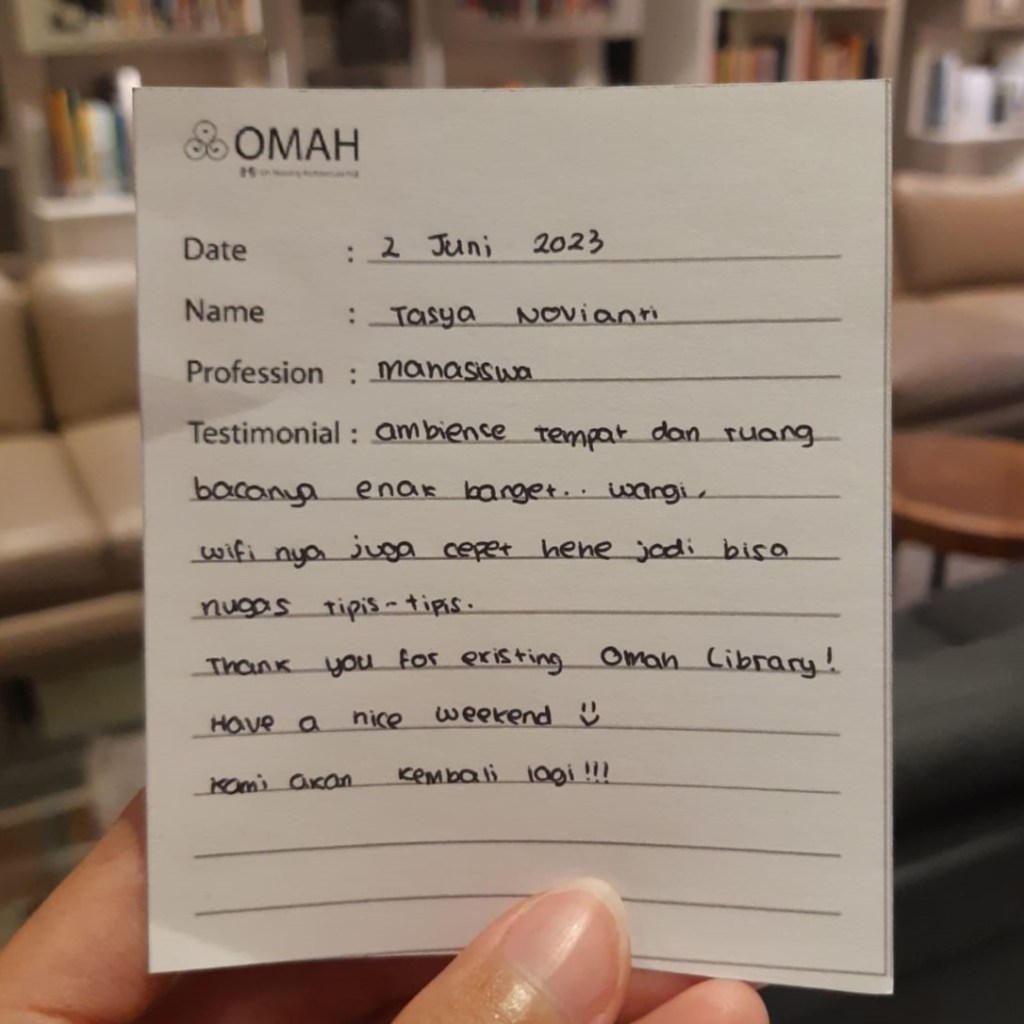 OMAH
Date : 2 Juni 2023
Name : Tasya Novianti
Profession : Mahasiswa
Testimonial : ambience tempat dan ruang
bacanya enak banget.. wangi,
wifi nya juga cepet hehe jadi bisa
nugas tipis-tipis.
Thank you for existing Omah Library!
Have a nice weekend
kami akan kembali lagi!!!